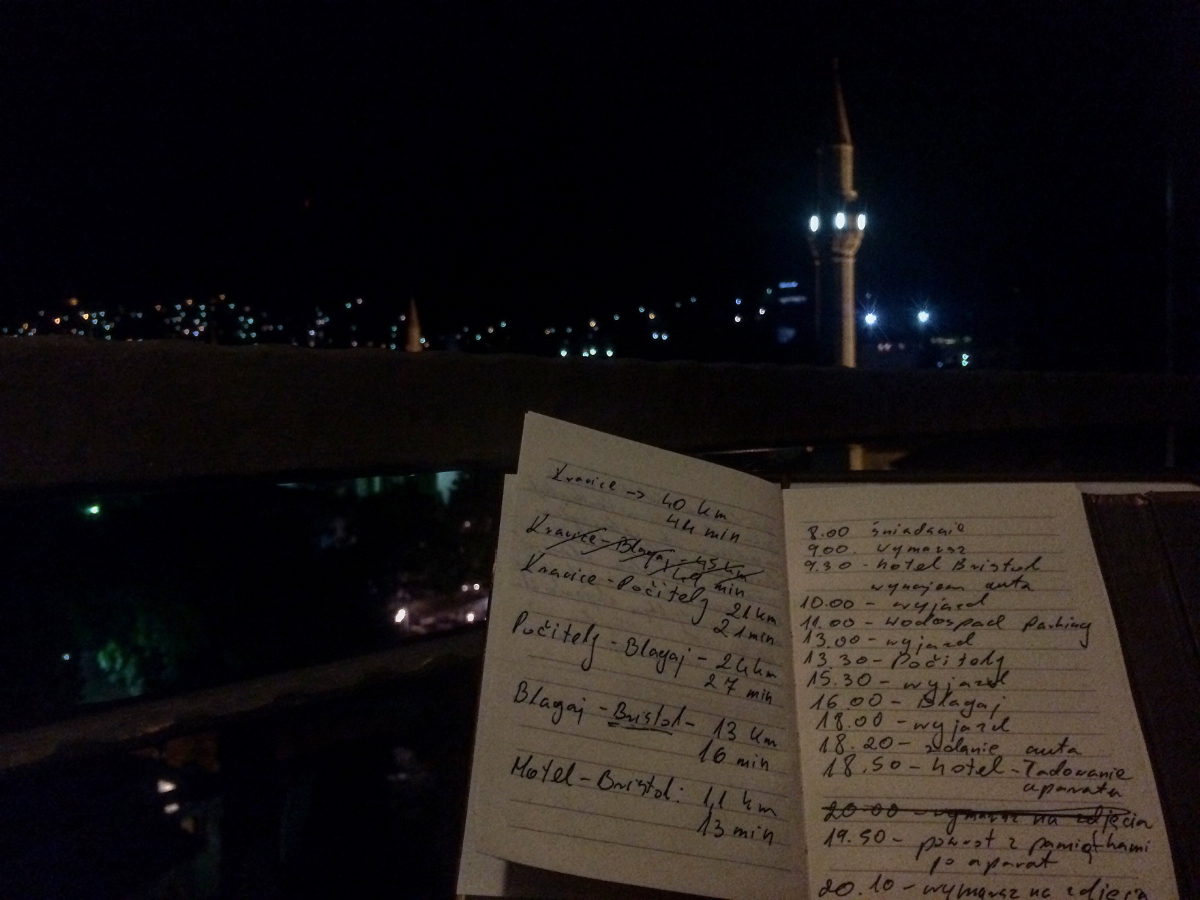 Kravice -> 40 km
44 min
Kravice - Blagaj 45 km
49 min
Kravice - Počitelj 21 km
21 min
Počitelj - Blagaj - 24 km
27 min
Blagaj - Bristol - 13 km
16 min
Motel - Bristol: 1,1 km
13 min
8.00 śniadanie
9.00. wymarsz
9.30 - hotel Bristol
wynajem auta
10.00 - wyjazd
11.00 - wodospad parking
13.00 - wyjazd
13.30 - Počitelj
15.30 - wyjazd
16.00 - Blagaj
18.00 - wyjazd
18.20 - zdanie auta
18.50 - hotel - ładowanie
aparatu
20.00 - wymarsz na zdjęcia
19.50 - powrót z pamiątkami
po aparat
20.10 - wymarsz na zdjęcia